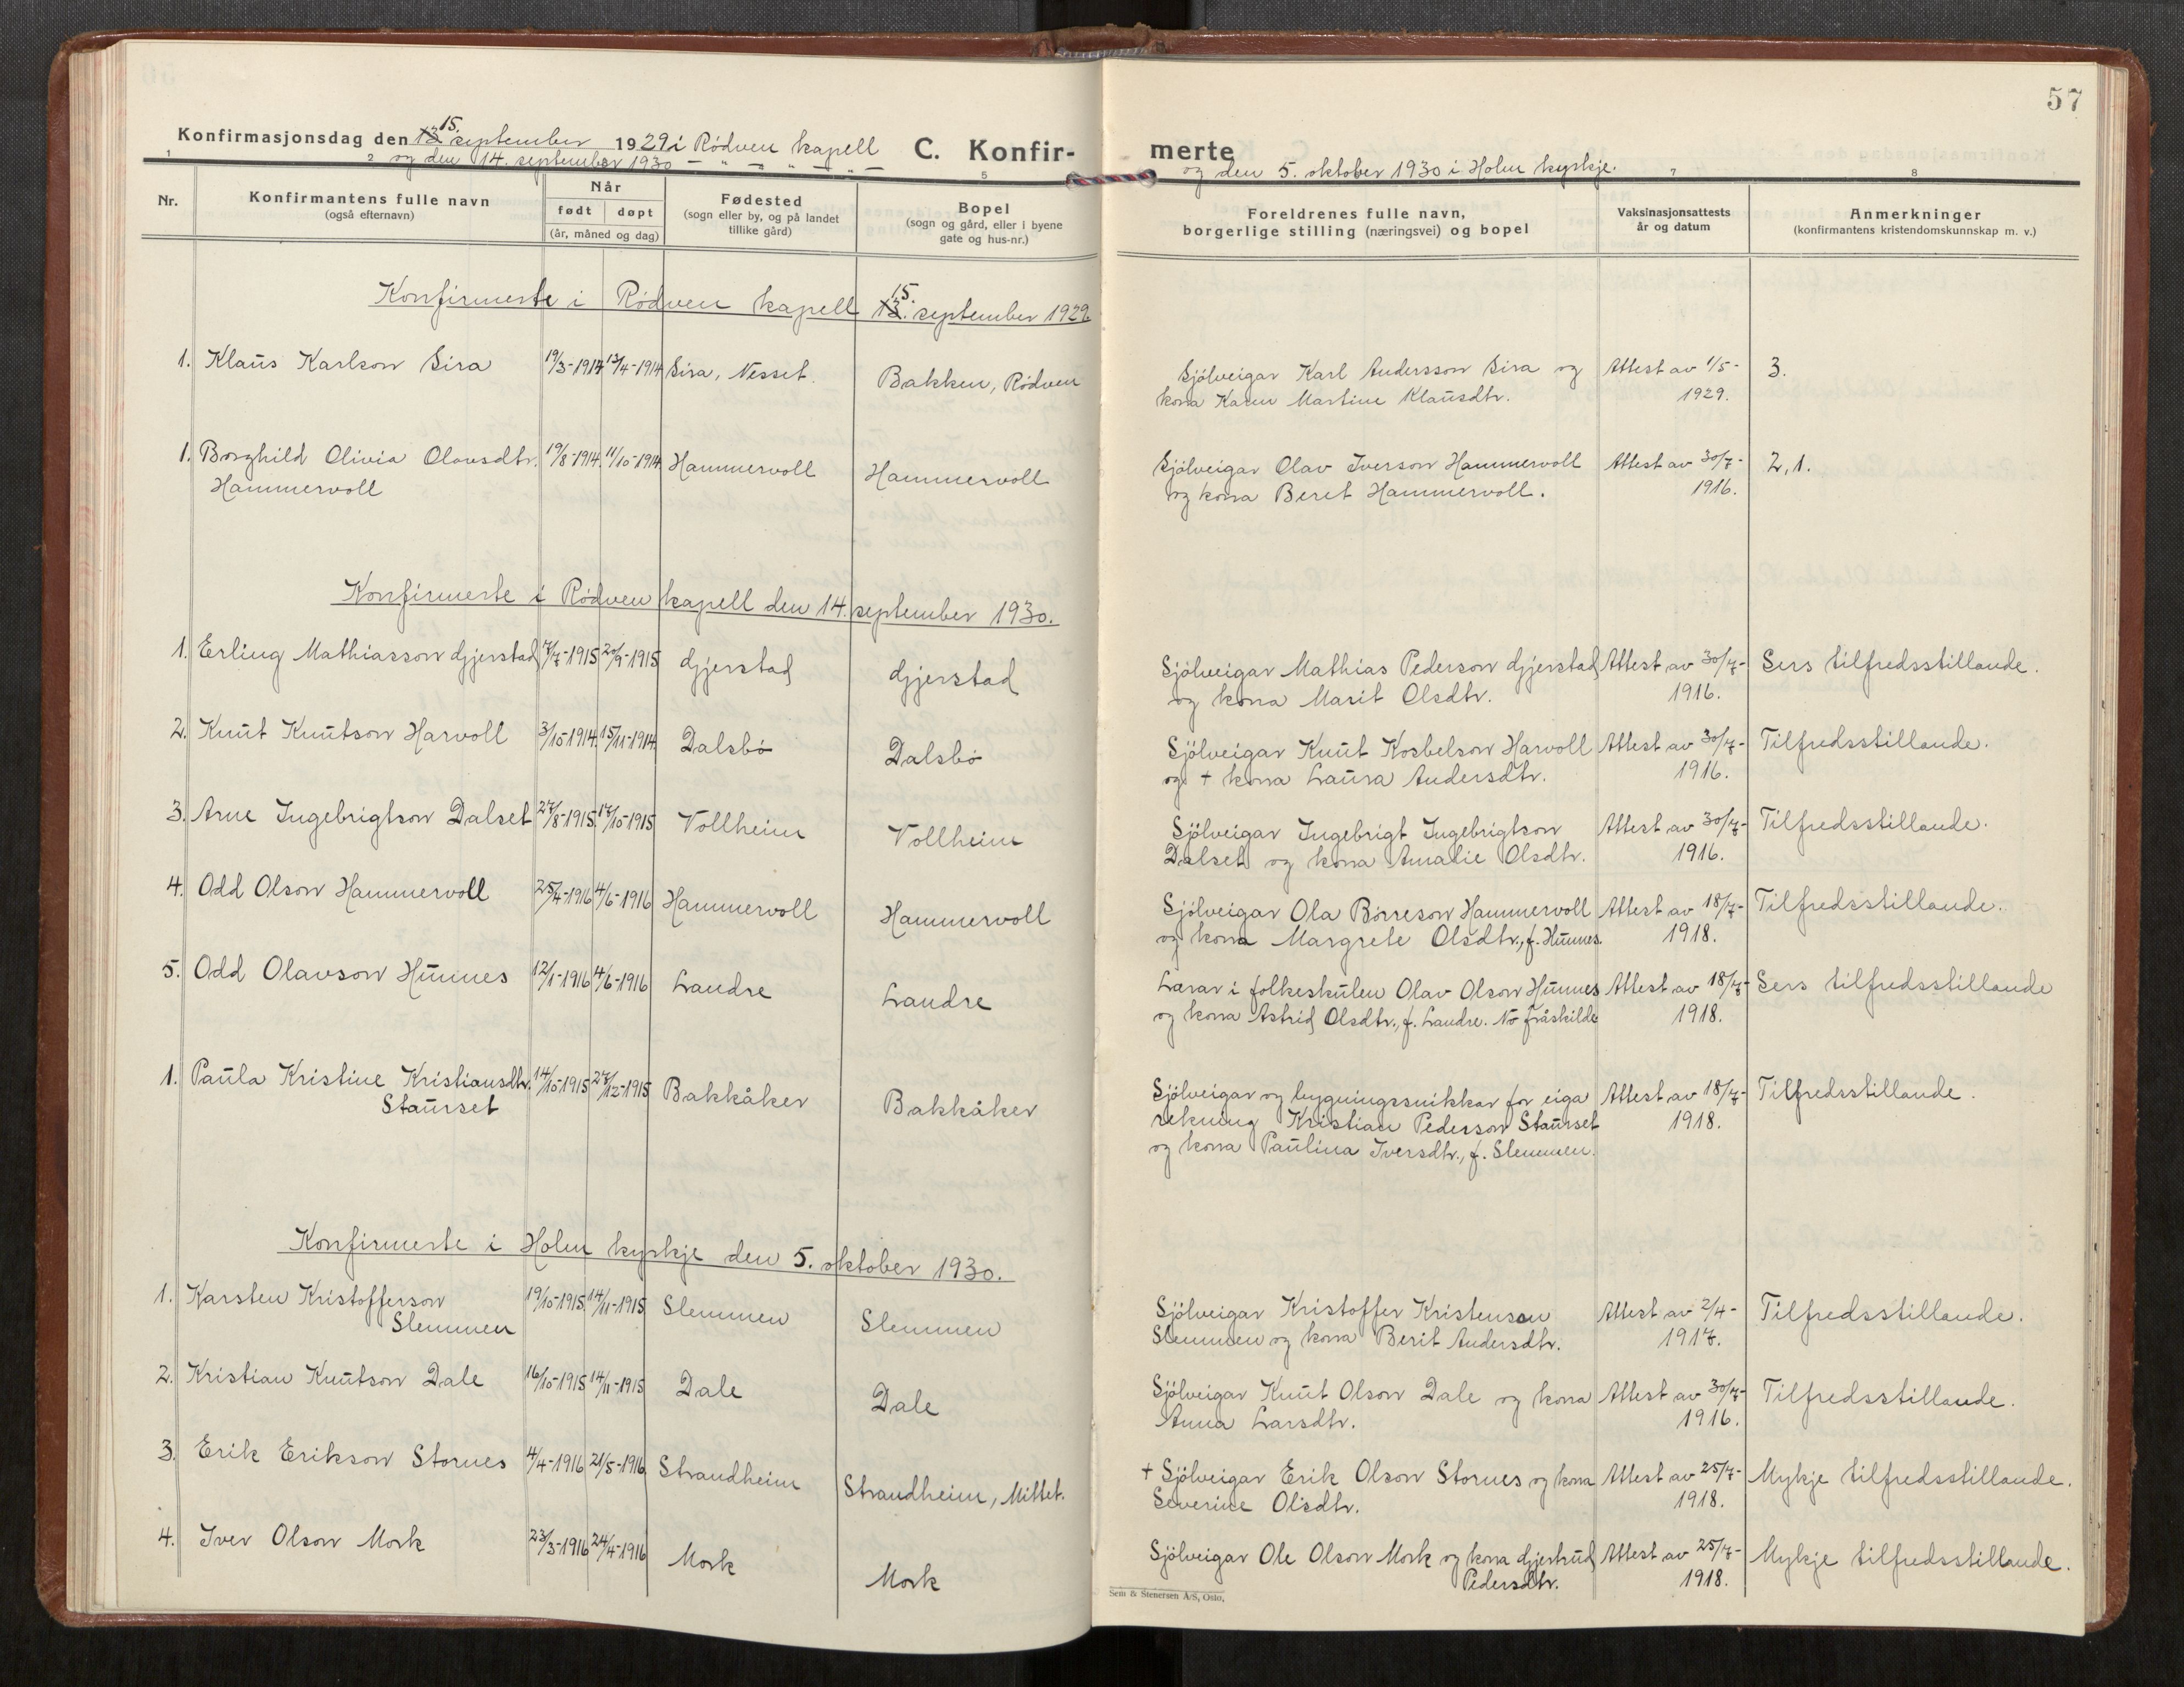 57
15.
Konfirmasjonsdag den 13. september 1929 i Rødven kapell C. Konfir- merte
og den 14. september 1930 – " – " – " – og den 5. oktober 1930 i Holm kyrkje.
1 2 3 5 7 8
Nr. Konfirmantens fulle navn (også efternavn) Når født døpt (år, måned og dag) Fødested (sogn eller by, og på landet tillike gård) Bopel (sogn og gård, eller i byene gate og hus-nr.) Foreldrenes fulle navn, borgerlige stilling (næringsvei) og bopel Vaksinasjonsattests år og datum Anmerkninger (konfirmantens kristendomskunnskap m. v.)
15.
Konfirmerte i Rødven kapell 13. september 1929.
1. Klaus Karlson Sira 19/3-1914 13/4-1914 Sira, Nesset. Bakken, Rødven Sjölveigar Karl Andersson Sira og Attest av 1/5- 3.
kona Karen Martine Klausdtr. 1929.
1. Borghild Olivia Olavsdtr. 19/8-1914. 11/10-1914 Hammervoll Hammervoll Sjölveigar Olav Iverson Hammervoll Attest av 30/7- 2,1.
Hammervoll og kona Beret Hammervoll. 1916.
Konfirmerte i Rødven kapell den 14. september 1930.
1. Erling Mathiasson Gjerstad 7/7-1915 20/9-1915 Gjerstad Gjerstad Sjölveigar Mathias Pederson Gjerstad Attest av 30/7- Sers tilfredsstillande.
og kona Marit Olsdtr. 1916.
2. Knut Knutson Harvoll 3/10-1914. 15/11-1914. Dalsbø Dalsbø Sjölveigar Knut Kosbelson Harvoll Attest av 30/7- Tilfredsstillande.
og + kona Laura Andersdtr. 1916.
3. Arne Ingebrigtson Dalset 27/8-1915. 17/10-1915 Vollheim Vollheim Sjölveigar Ingebrigt Ingebrigtson Attest av 30/7- Tilfredsstillande.
Dalset og kona Amalie Olsdtr. 1916.
4. Odd Olson Hammervoll 25/4-1916 4/6-1916 Hammervoll Hammervoll Sjölveigar Ola Børreson Hammervoll Attest av 18/7- Tilfredsstillande.
og kona Margrete Olsdtr., f. Hunnes. 1918.
5. Odd Olavson Hunnes 12/1-1916 4/6-1916 Landre Landre Lærar i folkeskulen Olav Olson Hunnes Attest av 18/7- Sers tilfredsstillande
og kona Astrid Olsdtr., f. Landre. No fråskilde 1918.
1. Paula Kristine Kristiansdtr. 14/10-1915 27/12-1915 Bakkåker Bakkåker Sjölveigar og bygningssnikkar for eiga Attest av 18/7- Tilfredsstillande.
Staurset rekning Kristian Pederson Staurset 1918.
og kona Paulina Iversdtr., f. Slemmen.
Konfirmerte i Holm kyrkje den 5. oktober 1930.
1. Karsten Kristofferson 19/10-1915. 14/11-1915 Slemmen Slemmen Sjölveigar Kristoffer Kristenson Attest av 2/4- Tilfredsstillande.
Slemmen Slemmen og kona Berit Andersdtr. 1917.
2. Kristian Knutson Dale 16/10-1915 14/11-1915 Dale Dale Sjölveigar Knut Olson Dale og kona Attest av 30/7- Tilfredsstillande.
Anna Larsdtr. 1916.
3. Erik Erikson Stornes 4/4-1916 21/5-1916 Strandheim Strandheim, Mittet. + Sjölveigar Erik Olson Stornes og kona Attest av 25/7- Mykje tilfredsstillande.
Severine Olsdtr. 1918.
4. Iver Olson Mork 23/3-1916 24/4-1916 Mork Mork Sjölveigar Ole Olson Mork og kona Gjertrud Attest av 25/7- Mykje tilfredsstillande.
Pedersdtr. 1918.
Sem & Stenersen A/S, Oslo.